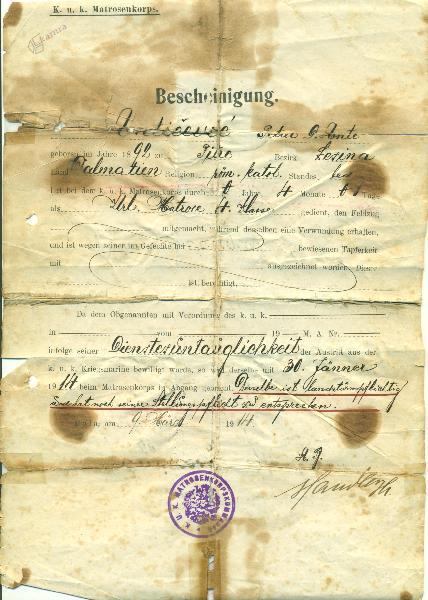 K. u. k. Matrosenkorps.
Bescheinigung.
Petar d. Ante
geboren im Jahre 1892 zu Bezirk Lesina
Land Dalmatien Religion röm. katol. Standes
hat bei dem k. u. k. Matrosenkorps durch Jahre 4 Monate Tage
als Matrose 4. Klasse gedient, den Feldzug
mitgemacht, während desselben eine Verwundung erhalten,
und ist wegen seiner im Gefechte bei bewiesenen Tapferkeit
mit ausgezeichnet worden. Diese
ist berechtigt,
Da dem Obgenannten mit Verordnung des k. u. k.
in vom 19 M. A. Nr.
infolge seiner Dienstesuntauglichkeit der Austritt aus der
k. u. k. Kriegsmarine bewilligt wurde, so derselbe mit 30. Jänner
1914 beim Matrosenkorps in Abgang gebracht. Derselbe ist Landsturmpflichtig
hat noch seiner Stellungspflicht zu entsprechen.
Pola, am 9. März 1914.
K. U. K. MATROSENKORPSKOMMANDO